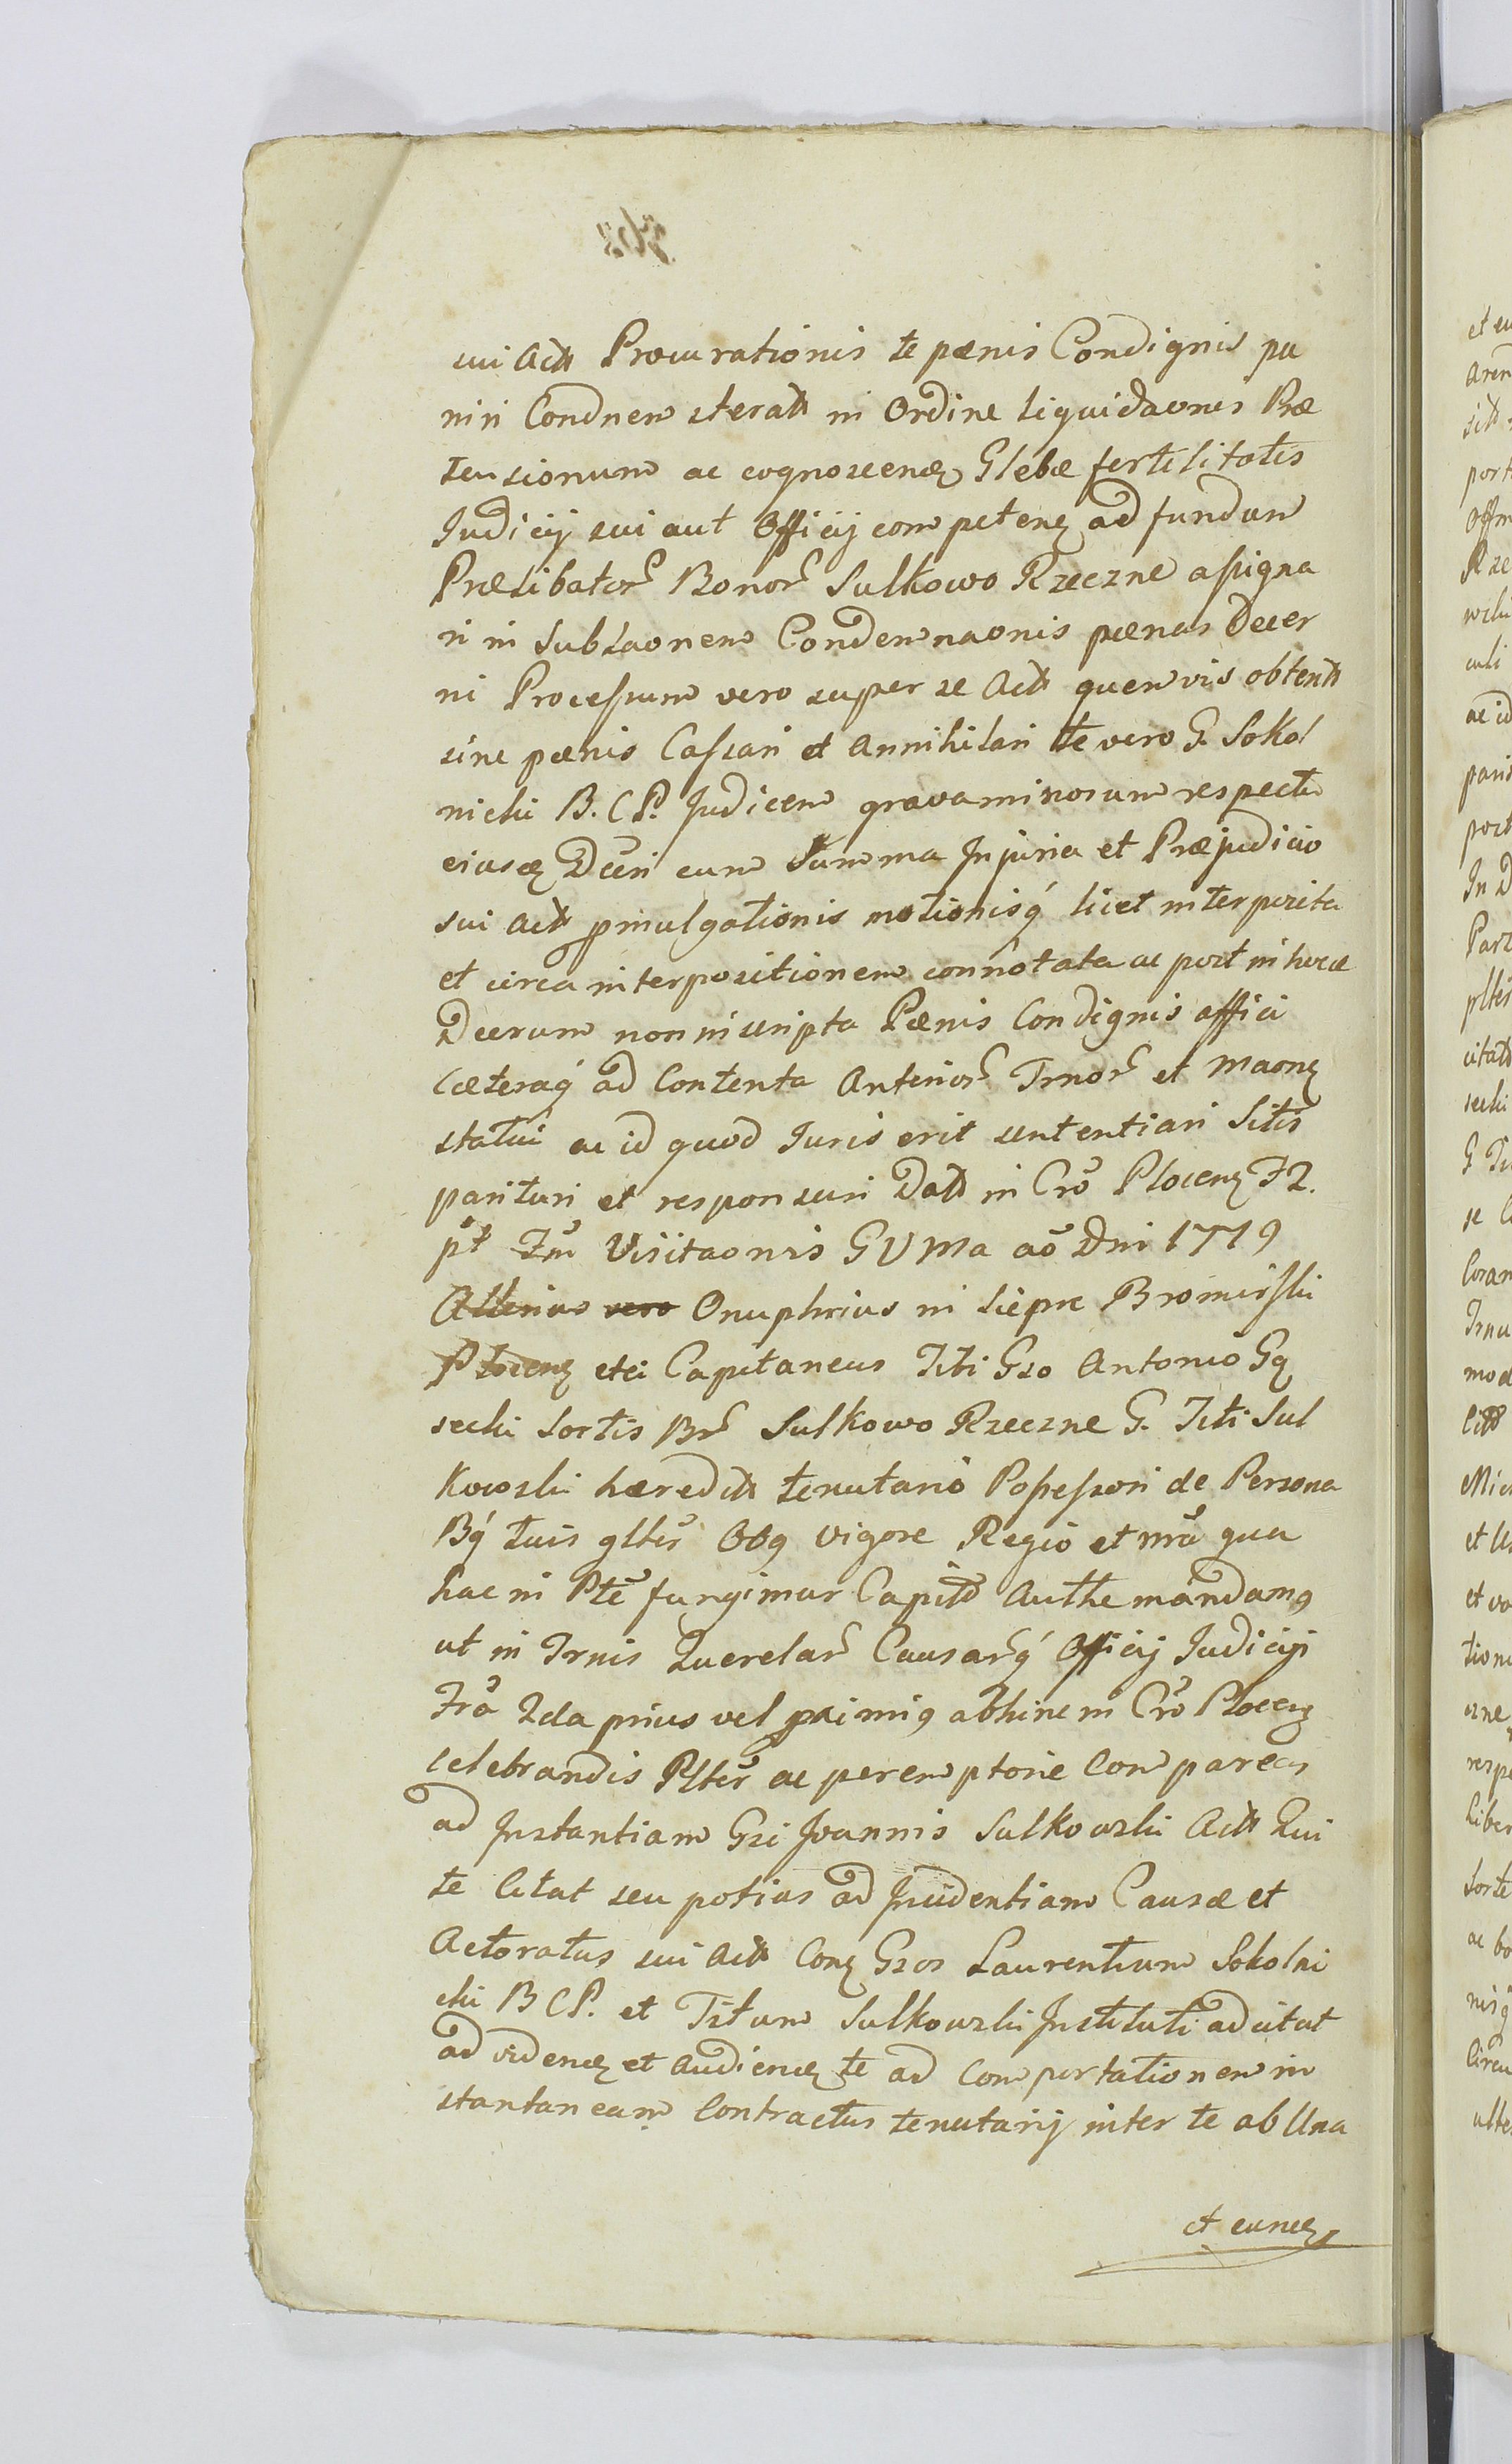 sui Actt Procurationis te pœnis Condignis pu
niri Condnem steratt in Ordine liquidaonis Præ
tensionum ac cognoscenȝ Glebæ fertilitatis
Judicij sui aut Officij competenȝ ad fundum
Prælibator Bonor Sulkowo Rzeczne assigna
ri in Sublaonem Condemnaonis pœnas Decer
ni Processum vero super se Actt quemvis obtentt
sine pœnis Cassari et Annihilari te vero G. Sokol
nicki B. C P. Judicem gravaminosum respectu
eiusȝ Dcri cum Summa Injuria et Præjudicio
sui Actt pmulgationis motionisq licet interposita
et circa interpositionem connotata ac post in hocce
Dcerum non inscripta Pœnis Condignis affici
Cæteraq ad Contenta Anterior Trnor et Maonȝ
statui ac id quod Juris erit sententiari Sitis
parituri et responsuri Datt in Cro Plocenȝ F2.
pt Fm Visitaonis G V Ma ao Dni 1779
Alterius vero Onuphrius in Siepre Bromirski
Plocenȝ etci Capitaneus Tibi Gso Antonio Gą
secki Sortis Br Sulkowo Rzeczne G. Titi Sul
kowski hæreditt tenutario Possessori de Persona
Bq tuis glter Obq vigore Regio et nra qua
hac in Pte fungimur Capitt Autthe mandamq
ut in Trnis Querelar Causarq Officij Judicij
Fra 2da prius vel primis abhinc in Cro Plocenȝ
celebrandis Plter ac peremptorie Compareas
ad Jnstantiam Gsi Joannis Sulkowski Actt Qui
te Citat seu potius ad Jncidentiam Causæ et
Actoratus sui Actt Conȝ Gsos Laurentium Sokolni
cki B C P. et Titum Sulkowski Jnstituti adcitat
ad videnȝ et Audienȝ te ad Comportationem in
stantaneam Contractus tenutarij inter te ab Una
et eunȝ